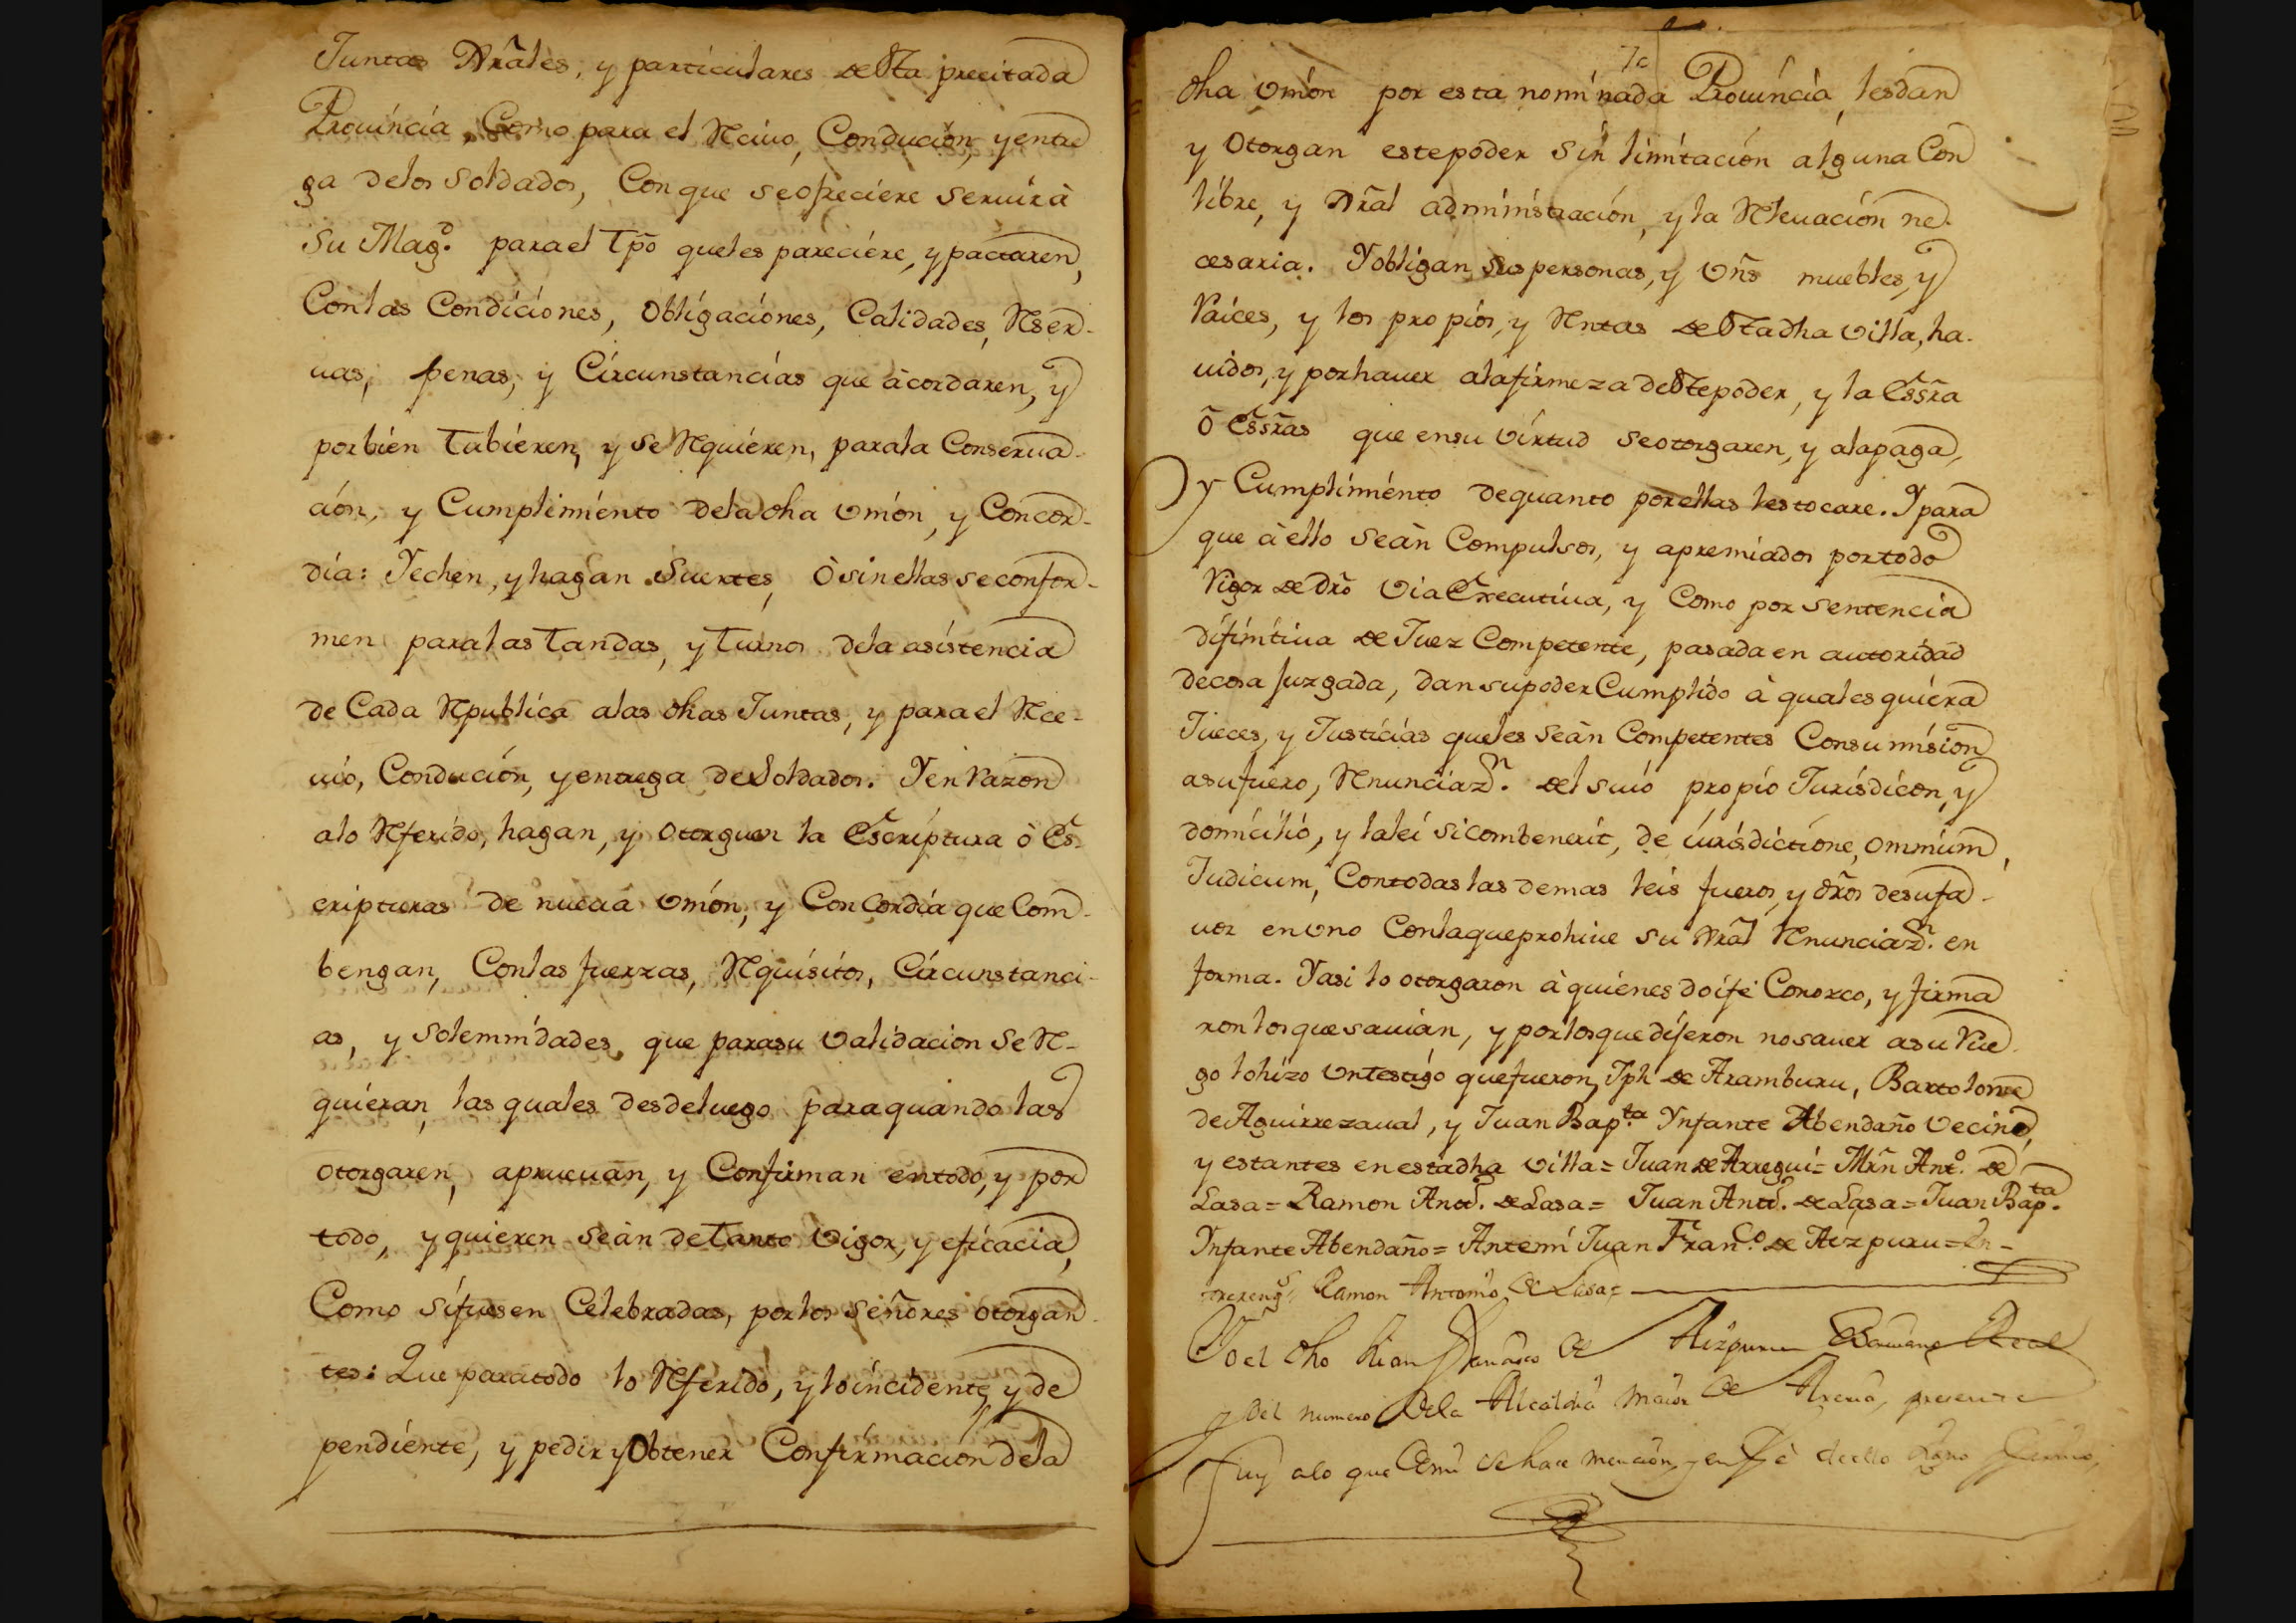 Juntas Grãles, y particulares de esta precitada
Provincia, Como para el Recivo, Conducion, y entre
ga de los soldados, Con que se ofreciere servir à
su Magᵈ. para el tp̃o que les pareciere, y pactaren,
Con las Condiciones, obligaciones, Calidades, Reser-
uas, penas, y Circunstancias que àcordaren, y
por bien tubieren, y se Requieren, para la Conserua-
cion, y Cumplimiento de la dha vnion, y Concor-
dia: Y echen, y hagan suertes, ò sin ellas se confor-
men para las tandas, y turnos de la asistencia
de Cada Republica a las dhas Juntas, y para el Rec-
iuo, Conducion, y entrega de soldados. Y en razon
a lo Referido, hagan, y otorguen la Escriptura ò Es-
cripturas de nueua vnion, y Concordia que Com-
bengan, Con las fuerzas, Requisitos, Circunstanci-
as, y solemnidades, que para su validacion se Re-
quieran, las quales desde luego para quando las
otorgaren, aprueuan, y Confirman en todo, y por
todo, y quieren seàn de tanto vigor, y eficacia,
Como si fuesen Celebradas, por los señores otorgan-
tes: Que para todo lo Referido, y lo incidente, y de
pendiente, y pedir y obtener Confirmacion de la
dha vnion por esta nominada Provincia, les dan
y otorgan este poder sin limitacion alguna Con
libre, y Grãl administracion, y la Releuacion ne-
cesaria. Y obligan sus personas, y vñs muebles, y
Raices, y los propios, y Rentas de esta dha villa, ha-
uidos, y por hauer a la firmeza de este poder, y la Essrã
ò Essrãs que en su virtud se otorgaren, y a la paga,
y Cumplimiento de quanto por ellas les tocare. Y para
que à ello seàn Compulsos, y apremiados por todo
Rigor de drõ via Executiua, y Como por sentencia
difinitiua de Juez Competente, pasada en autoridad
de cosa Juzgada, dan su poder Cumplido à quales quiera
Jueces, y Justicias que les seàn Competentes Con sumision
a su fuero, Renunciazⁿ. del suio propio Jurisdicon, y
domicilio, y la lei si combenerit, de iurisdictione, omnium,
Judicum, Con todas las demas leis fueros, y drõs de su fa-
uor en vno Con la que prohiue su Grãl Renunciazⁿ. en
forma. Y asi lo otorgaron à quienes doi fe Conozco, y firma
ron los que sauian, y por los que dijeron no sauer a su Rue-
go lo hizo vn testigo que fueron, Jph de Aramburu, Bartolome
de Aguirrezaual, y Juan Bapᵗᵃ. Ynfante Abendaño Vecinos,
y estantes en esta dha villa = Juan de Arregui = Mrñ Antº. de
Lasa = Ramon Antº. de Lasa = Juan Antº. de Lasa = Juan Bapᵗᵃ.
Ynfante Abendaño = Antemi Juan Franᶜᵒ. de Aizpuru = En-
trerengˢ. Ramon Antonio de Lasa =
Yo el dho Juan Francisco de Aizpuru Escriuano Real
y del numero de la Alcaldia maior de Areria, presente
fuy a lo que de mi se haze mencion, y en fe de ello signo y firmo,